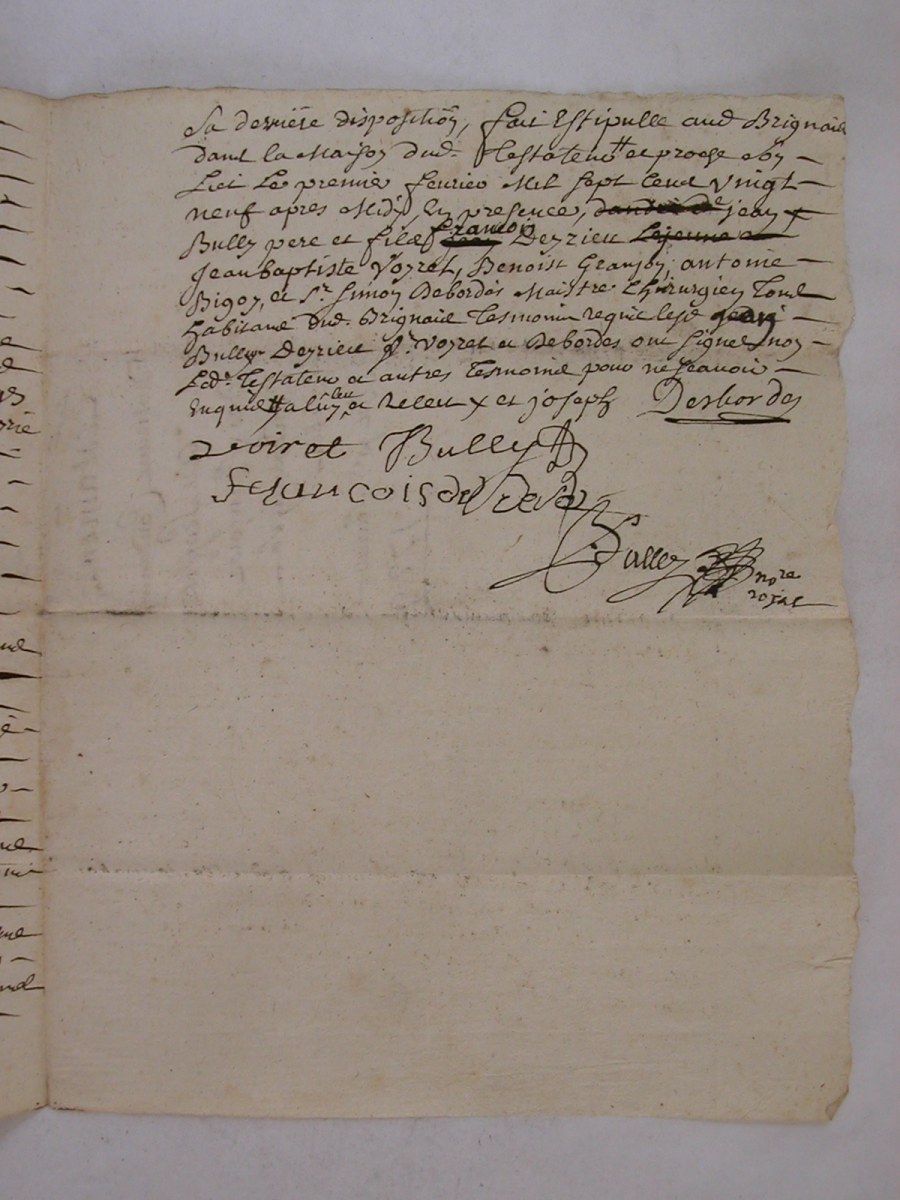 Sa derniere disposition, fait Estipulle aud Brignais
dans la Maison dud. Testateur et proche son
Lict Le premier feurier Mil sept Cent vingt
neuf apres Midy, En presence, de jean
Bully pere et fils francois Deyrieu
Jean baptiste Voyret, Benoist Granjon, antoine
Bigot, et Sr. Simon Debordes Maistre Chirurgien Tous
habitans dud. Brignais Tesmoins requis lesd
Bully Deyrieu Sr. Voyret et Debordes ont signe non
Led. Testateur et autres Tesmoins pour ne scauoir
Enquis a luy leu et Releu x et joseph Desbordes
voiret Bully
francois
Bully nore
roial